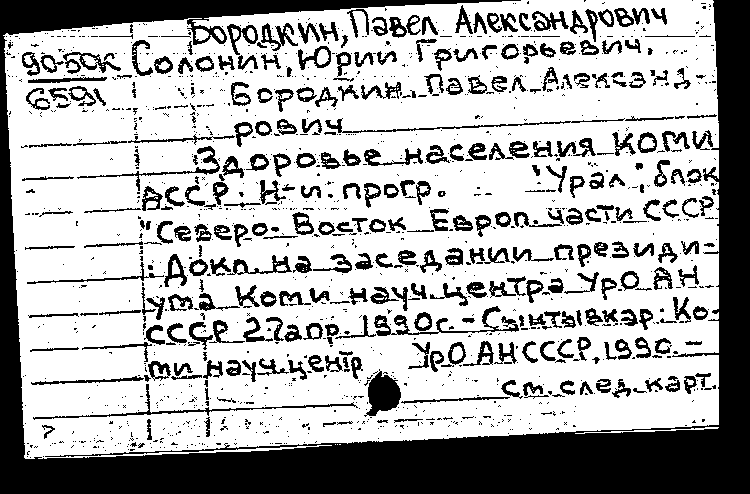 Бородкин, Павел Александрович
90-50К Солонин, Юрий Григорьевич.
6591 Бородкин, Павел Александ-
рович
Здоровье населения Коми
АССР: Н-и. прогр. "Урал", блок
"Северо-Восток Европ. части СССР"
: Докл. на заседании президи-
ума Коми науч. центра УрО АН
СССР 27 апр. 1990г. - Сыктывкар: Ко-
ми науч. центр УрО АН СССР, 1990. -
см. след. карт.